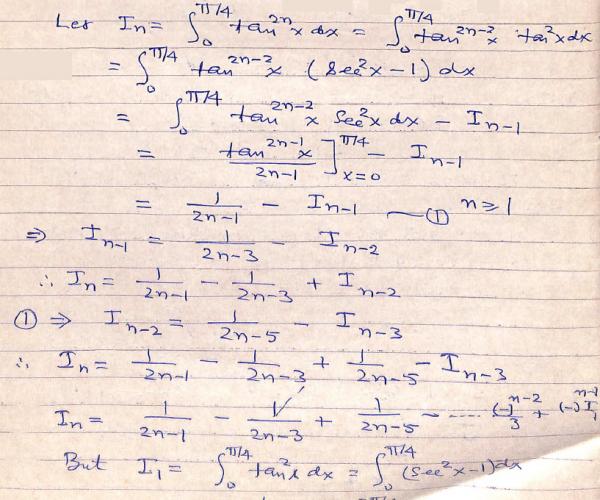 Let Iₙ = ∫₀^{π/4} tan²ⁿx dx = ∫₀^{π/4} tan²ⁿ⁻²x tan²x dx
= ∫₀^{π/4} tan²ⁿ⁻²x (Sec²x − 1) dx
= ∫₀^{π/4} tan²ⁿ⁻²x Sec²x dx − Iₙ₋₁
= tan²ⁿ⁻¹x / 2n−1 ]_{x=0}^{π/4} − Iₙ₋₁
= 1/(2n−1) − Iₙ₋₁ — ① n ≥ 1
⇒ Iₙ₋₁ = 1/(2n−3) − Iₙ₋₂
∴ Iₙ = 1/(2n−1) − 1/(2n−3) + Iₙ₋₂
① ⇒ Iₙ₋₂ = 1/(2n−5) − Iₙ₋₃
∴ Iₙ = 1/(2n−1) − 1/(2n−3) + 1/(2n−5) − Iₙ₋₃
Iₙ = 1/(2n−1) − 1/(2n−3) + 1/(2n−5) − ..... (−)ⁿ⁻²/3 + (−)ⁿ⁻¹ I₁
But I₁ = ∫₀^{π/4} tan²x dx = ∫₀^{π/4} (Sec²x − 1) dx